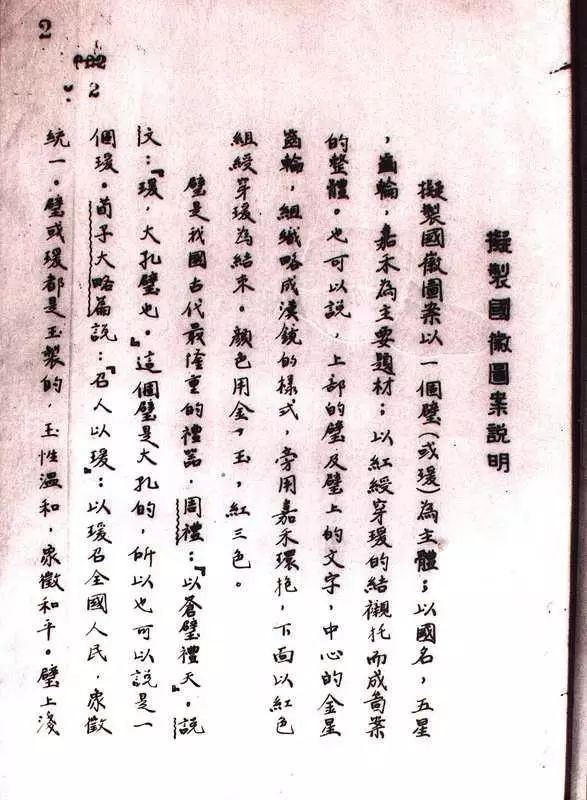 2
2
擬製國徽圖案説明
擬製國徽圖案以一個璧（或瑗）為主體；以國名，五星
，齒輪，嘉禾為主要題材；以紅綬穿瑗的結襯托而成圖案
的整體。也可以説，上部的璧及璧上的文字，中心的金星
齒輪，組織略成漢鏡的樣式，旁用嘉禾環抱，下面以紅色
組綬穿瑗為結束。顏色用金、玉，紅三色。
璧是我國古代最隆重的禮器，周禮：『以蒼璧禮天。』説
文：『瑗，大孔璧也。』這個璧是大孔的，所以也可以説是一
個瑗。荀子大略篇説：『召人以瑗』：以瑗召全國人民，象徵
統一。璧或瑗都是玉製的，玉性溫和，象徵和平。璧上淺